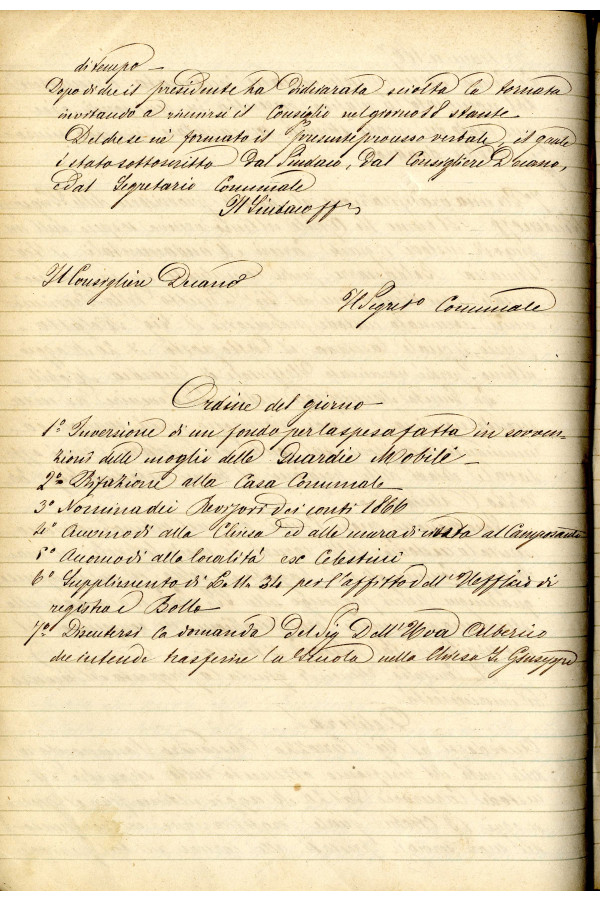 di tempo
Dopo di che il presidente ha dichiarata sciolta la tornata
invitando a riunirsi il Consiglio nel giorno 18 stante
Del che se nè formato il presente processo verbale, il quale
è stato sottoscritto dal Sindaco, dal Consigliere Deciano,
e dal Segretario Comunale
Il Sindaco ff
Il Consigliere Deciano
Il Segret.o Comunale
Ordine del giorno
1° Inversione di un fondo per la spesa fatta in sovven-
zioni delle moglie delle Guardie Mobile
2° Rifazione alla Casa Comunale
3° Nomina dei Revisori dei conti 1866
4° Accomodi alla Chiesa ed alle mura di cinta al Camposanto
5° Accomodi alla località ex Celestini
6° Supplimento di L. 34 per l'affitto dell'Uffizio di
registro e Bollo
7° Discutersi la domanda del Sig Dell'Uva Alberico
che intende trasferire la Scuola nella Chiesa S. Giuseppe